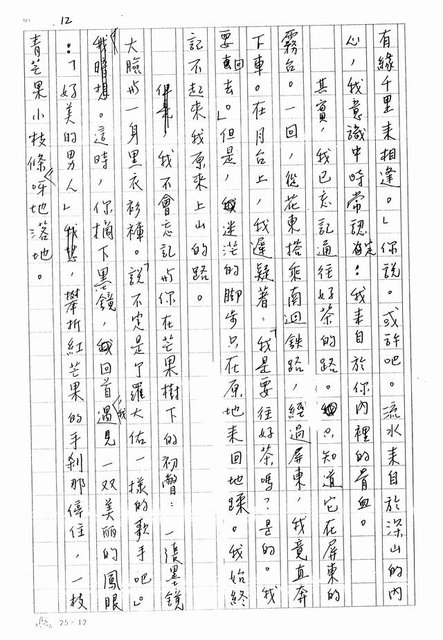 12
有緣千里來相逢。」你說。或許吧。流水來自於深山的內
心,我意識中時常認為:我來自於你內裡的骨血。
其實,我已忘記通往好茶的路。只知道它在屏東的
霧台。一回,從花東搭乘南迴鐵路,經過屏東,我竟直奔
下車。在月台上,我遲疑著,「我是要往好茶嗎?是的。我
要回去。」但是,迷茫的腳步只在原地來回地踩。我始終
記不起來我原來上山的路。
但是我不會忘記的你在芒果樹下的初瞥:一張墨鏡
大臉的一身黑衣衫褲。「說不定是了羅大佑一樣的歌手吧。」
我暗想。這時,你摘下墨鏡,我回首遇見一双美丽的鳳眼
:「好美的男人」我想,攀折紅芒果的手剎那停住,一枝
青芒果小枝條呀地落地。
25×12